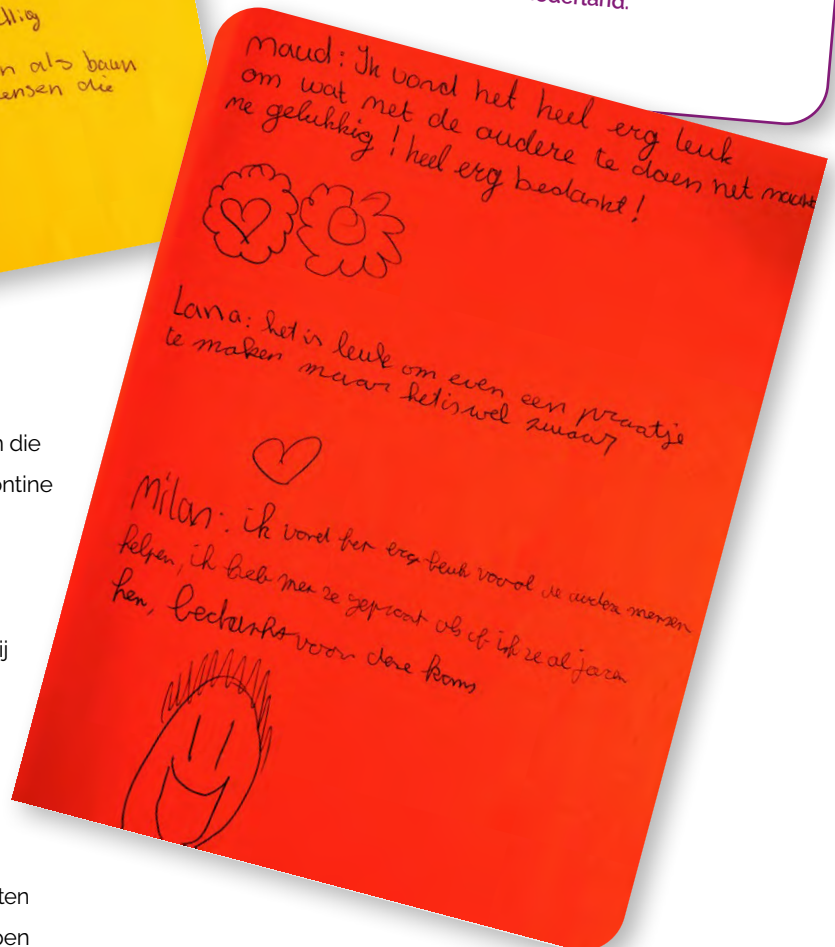 llig
n als baun
ensen die
ederland.
Maud: Ik vond het heel erg leuk
om wat met de oudere te doen het maakt
me gelukkig! heel erg bedankt!
Lana: het is leuk om even een praatje
te maken maar het is wel zwaar
Milan: ik vond het erg leuk vooral de oudere mensen
helpen, ik heb met ze gepraat als of ik ze al jaren
ken, bedankt voor deze kans
n die
ontine
ij
ten
pen